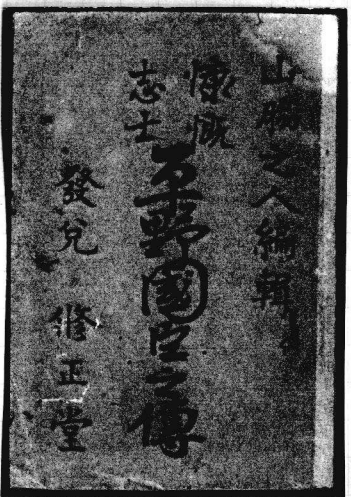 山鄰之人編輯
慷慨
志士
平野國臣之傳
發兌 修正堂